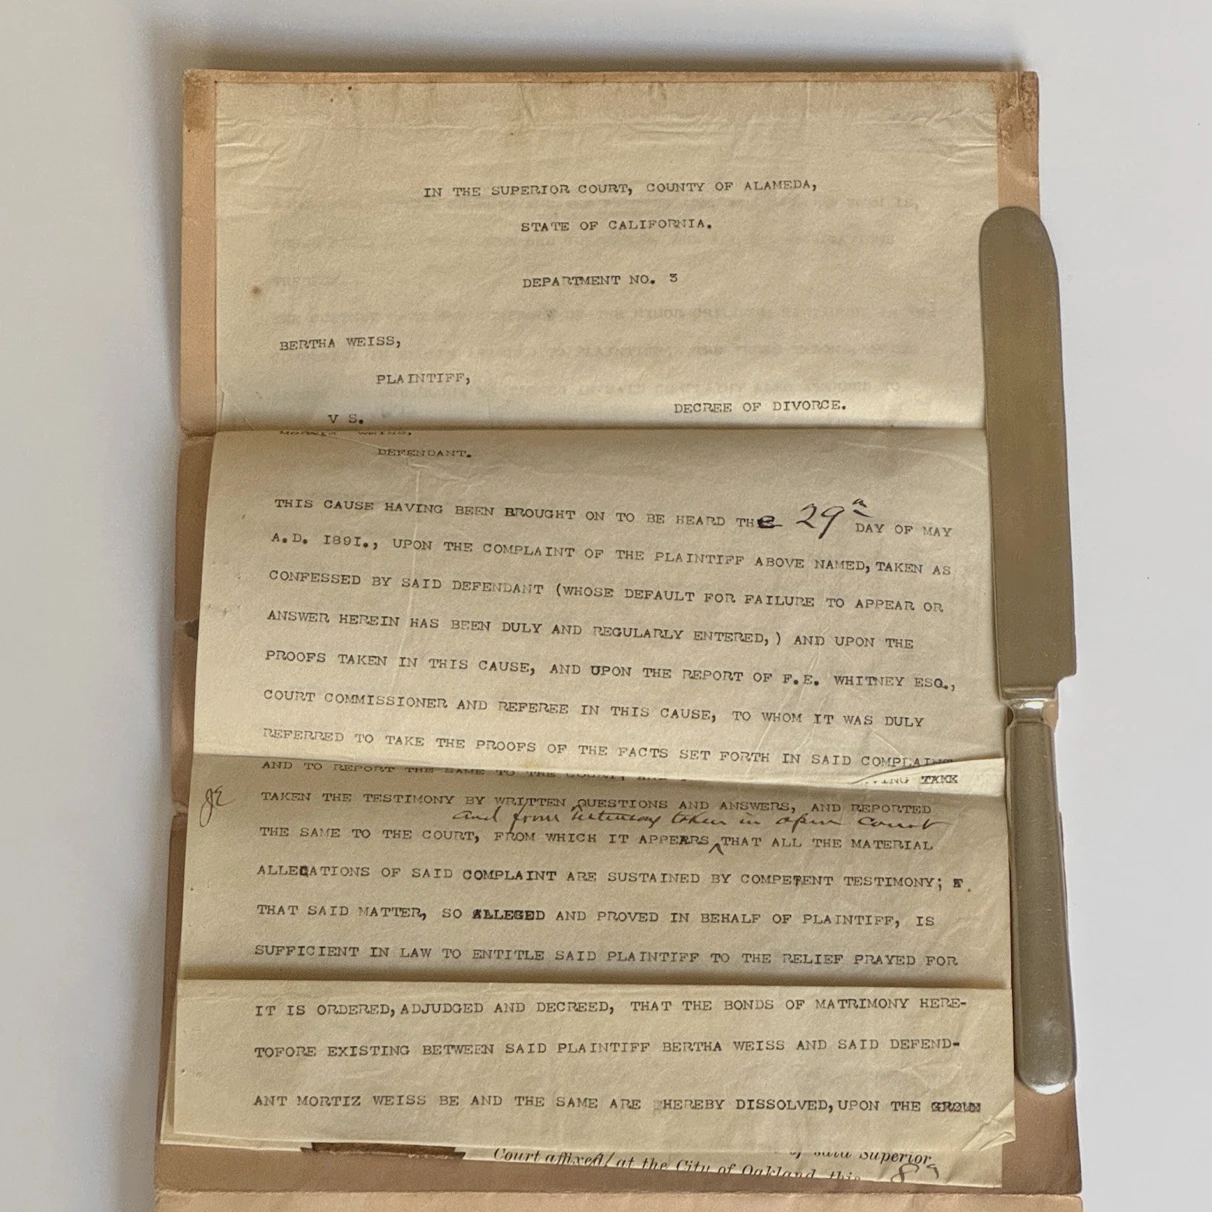 IN THE SUPERIOR COURT, COUNTY OF ALAMEDA,
STATE OF CALIFORNIA.
DEPARTMENT NO. 3
BERTHA WEISS,
PLAINTIFF,
V S.
DECREE OF DIVORCE.
WEISS,
DEFENDANT.
THIS CAUSE HAVING BEEN BROUGHT ON TO BE HEARD THe 29th DAY OF MAY
A.D. I89I., UPON THE COMPLAINT OF THE PLAINTIFF ABOVE NAMED, TAKEN AS
CONFESSED BY SAID DEFENDANT (WHOSE DEFAULT FOR FAILURE TO APPEAR OR
ANSWER HEREIN HAS BEEN DULY AND REGULARLY ENTERED,) AND UPON THE
PROOFS TAKEN IN THIS CAUSE, AND UPON THE REPORT OF F.E. WHITNEY ESQ.,
COURT COMMISSIONER AND REFEREE IN THIS CAUSE, TO WHOM IT WAS DULY
REFERRED TO TAKE THE PROOFS OF THE FACTS SET FORTH IN SAID COMPLAINT
AND TO REPORT THE SAME TO THE COURT; TAKE
TAKEN THE TESTIMONY BY WRITTEN QUESTIONS AND ANSWERS, AND REPORTED
and from testimony taken in open court
THE SAME TO THE COURT, FROM WHICH IT APPEARS THAT ALL THE MATERIAL
ALLEGATIONS OF SAID COMPLAINT ARE SUSTAINED BY COMPETENT TESTIMONY;
THAT SAID MATTER, SO ALLEGED AND PROVED IN BEHALF OF PLAINTIFF, IS
SUFFICIENT IN LAW TO ENTITLE SAID PLAINTIFF TO THE RELIEF PRAYED FOR
IT IS ORDERED, ADJUDGED AND DECREED, THAT THE BONDS OF MATRIMONY HERE-
TOFORE EXISTING BETWEEN SAID PLAINTIFF BERTHA WEISS AND SAID DEFEND-
ANT MORTIZ WEISS BE AND THE SAME ARE HEREBY DISSOLVED, UPON THE
of said Superior
Court affixed at the City of Oakland, this